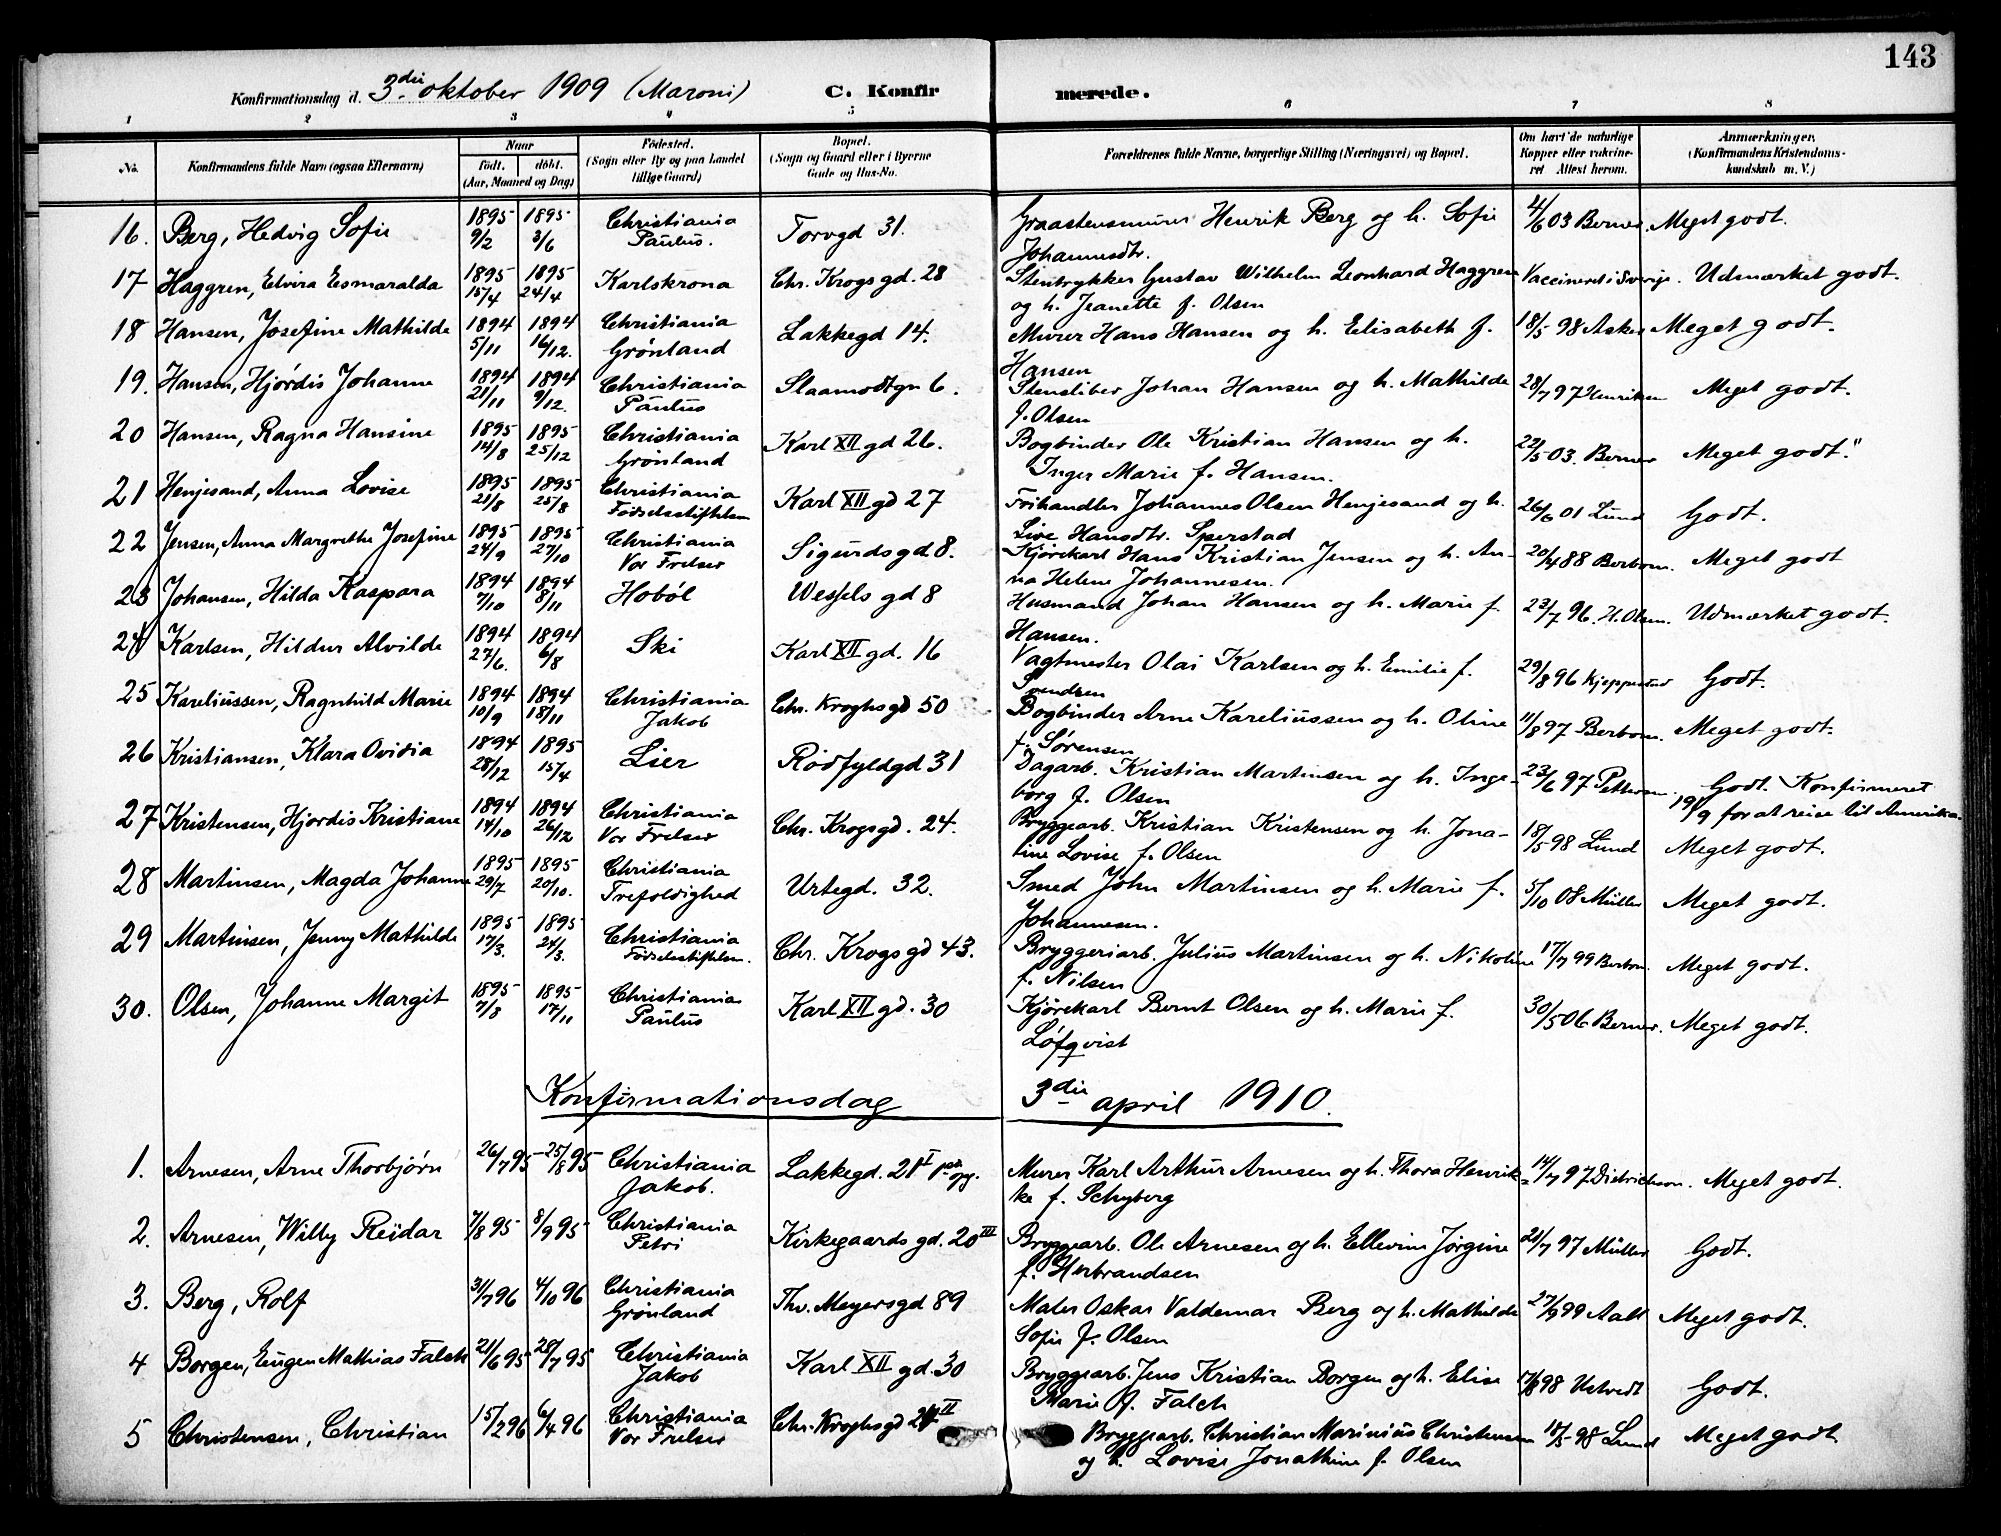 143
Konfirmationsdag d. 3die oktober 1909 (Maroni) C. Konfirmerede.
1 2 3 4 5 6 7 8
No. Konfirmandens fulde Navn (ogsaa Efternavn) Naar født. døbt. (Aar, Maaned og Dag) Fødested. (Sogn eller By og paa Landet tillige Gaard) Bopæl. (Sogn og Gaard eller i Byerne Gade og Hus-No. Forældrenes fulde Navne, borgerlige Stilling (Næringsvei) og Bopæl. Om havt de naturlige Kopper eller vakcineret Attest herom. Anmærkninger. (Konfirmandens Kristendomskundskab m. V.)
16. Berg, Hedvig Sofie 1895 9/2 1895 3/6 Christiania Paulus. Torvgd 31. Graastensmurer Henrik Berg og h. Sofie Johannesdtr. 4/6 03 Berner. Meget godt.
17 Haggren, Elvira Esmaralda 1895 15/4 1895 24/4 Karlskrona Chr. Krogs gd. 28 Stentrykker Gustav Wilhelm Leonhard Haggren og h. Jeanette f. Olsen Vaccineret i Sverige. Udmærket godt.
18 Hansen, Josefine Mathilde 1894 5/11 1894 16/12. Christiania Grønland Lakkegd 14. Murer Hans Hansen og h. Elisabeth f. Hansen 18/5 98 Asker Meget godt.
19. Hansen, Hjørdis Johanne 1894 21/11 1894 9/12. Christiania Paulus Slaamodtgn 6. Stensliber Johan Hansen og h. Mathilde f. Olsen 28/7 97 Henriksen Meget godt.
20 Hansen, Ragna Hansine 1895 14/8 1895 25/12 Christiania Grønland Karl XII gd 26. Bogbinder Ole Kristian Hansen og h. Inger Marie f. Hansen. 22/5 03. Berner Meget godt."
21 Henjesand, Anna Lovise 1895 21/8 1895 25/8 Christiania Fødselsstiftelsen Karl XII gd 27 Frihandler Johannes Olsen Henjesand og h. Live Hansdtr. Sperstad 26/6 01 Lund Godt.
22 Jensen, Anna Margrethe Josefine 1895 24/9 1895 27/10 Christiania Vor Frelser Sigurds gd 8. Kjørekarl Hans Kristian Jensen og h. Anna Helene Johannesen. 20/4 88 Berbom. Meget godt
23 Johansen, Hilda Kaspara 1894 7/10 1894 8/11 Hobøl Wessels gd 8 Husmand Johan Hansen og h. Marie f. Hansen. 23/7 96. H. Olsen. Udmærket godt.
24 Karlsen, Hildur Alvilde 1894 27/6. 1894 6/8 Ski Karl XII gd. 16 Vagtmester Olai Karlsen og h. Emilie f. Svendsen 29/8 96 Kjeppestad Godt.
25 Kareliussen, Ragnhild Marie 1894 10/9 1894 18/11 Christiania Jakob Chr. Kroghs gd 50 Bogbinder Arne Kareliussen og h. Oline f. Sørensen 11/8 97 Berbom. Meget godt.
26 Kristiansen, Klara Ovidia 1894 28/12 1895 15/4 Lier Rødfyldgd 31 Dagarb. Kristian Martinsen og h. Ingeborg f. Olsen 23/6 97 Pettersen. Godt. Konfirmeret 19/9 for at reise til Amerika.
27 Kristensen, Hjordis Kristiane 1894 14/10 1894 26/12 Christiania Vor Frelser Chr. Krogs gd. 24. Bryggearb. Kristian Kristensen og h. Jonatine Lovise f. Olsen 18/5 98 Lund Meget godt.
28 Martinsen, Magda Johanne 1895 29/7 1895 20/10. Christiania Trefoldighed Urtegd. 32. Smed John Martinsen og h. Marie f. Johannesen. 5/10 08 Müller Meget godt.
29 Martinsen, Jenny Mathilde 1895 17/3. 1895 24/3. Christiania Fødselsstiftelsen. Chr. Krogs gd 43. Bryggeriarb. Julius Martinsen og h. Nikoline f. Nilsen 17/7 99 Berbom. Meget godt.
30. Olsen, Johanne Margit 1895 7/8 1895 17/11 Christiania Paulus Karl XII gd. 30 Kjørekarl Bernt Olsen og h. Marie f. Løfqvist 30/5 06 Berner. Meget godt.
Konfirmationsdag 3die april 1910.
1. Arnesen, Arne Thorbjørn 26/7 95 25/8 95 Christiania Jakob. Lakkegd. 21 I paa opg. Murer Karl Arthur Arnesen og h. Thora Henrikke f. Schyberg 14/7 97 Dietrichson. Meget godt.
2. Arnesen, Willy Reidar 7/8 95 8/9 95 Christiania Petri Kirkegaards gd. 20 III Bryggearb. Ole Arnesen og h. Ellevine Jørgine f. Herbrandsen 21/7 97 Müller Godt.
3. Berg, Rolf 31/7 96 4/10 96 Christiania Grønland Thv. Meyersgd 89 Maler Oskar Valdemar Berg og h. Mathilde Sofie f. Olsen 27/9 99 Aall Meget godt.
4 Borgen, Eugen Mathias Falch 21/6 95 28/7 95 Christiania Jakob Karl XII gd. 30 Bryggearb. Jens Kristian Borgen og h. Elise Marie f. Falch 17/8 98 Ustvedt Godt.
5 Christensen, Christian 15/2 96 6/4 96 Christiania Vor Frelser Chr. Kroghs gd 24 II Bryggearb. Christian Marinius Christensen og h. Lovise Jonathine f. Olsen 18/5 98 Lund Meget godt.